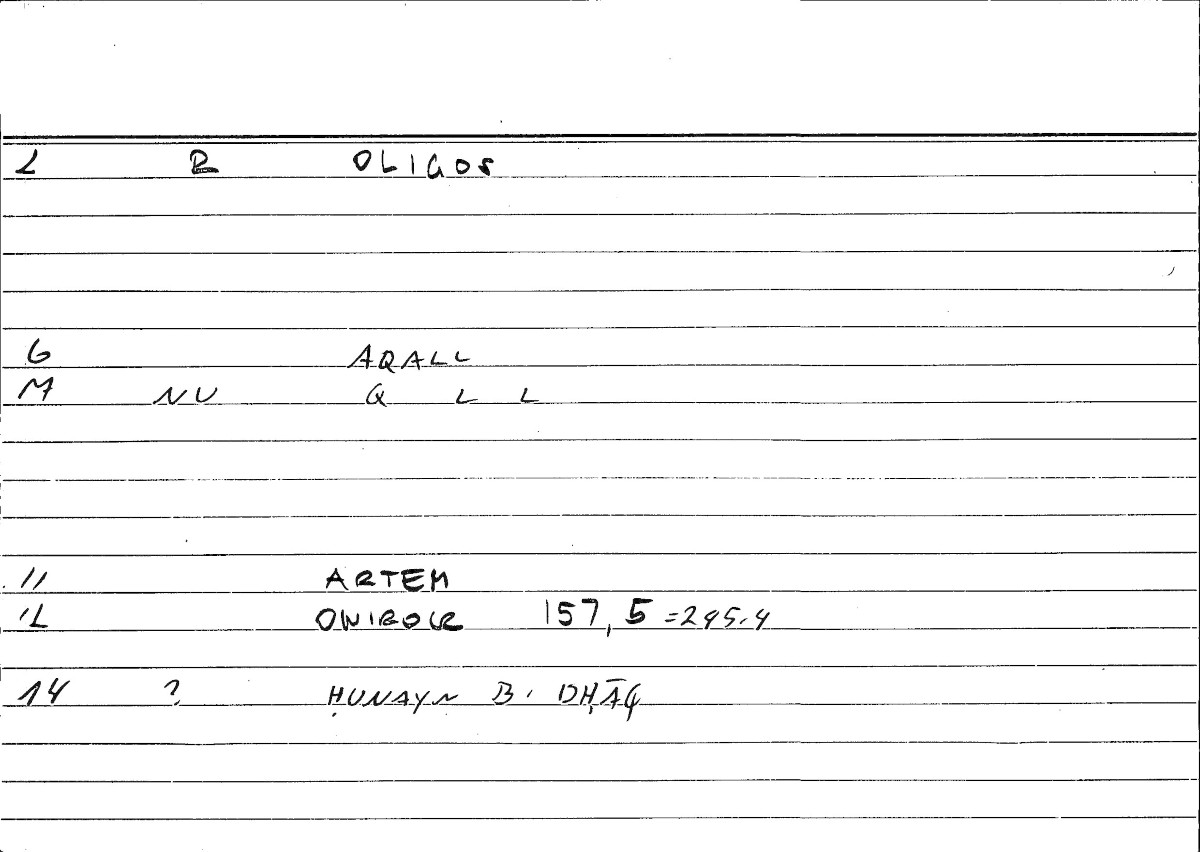 2 R OLIGOS
6 AQALL
M NU Q L L
11 ARTEM
12 ONIROCR 157,5 =295.4
14 ? ḤUNAYN B.